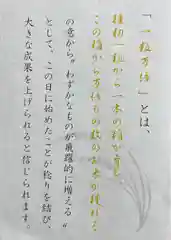 「一粒万倍」とは、
種籾一粒から一本の稲が育ち
この稲から万倍もの数のお米が獲れる
の意から〝わずかなものが飛躍的に増える〟
として、この日に始めたことが稔りを結び、
大きな成果を上げられると信じられます。